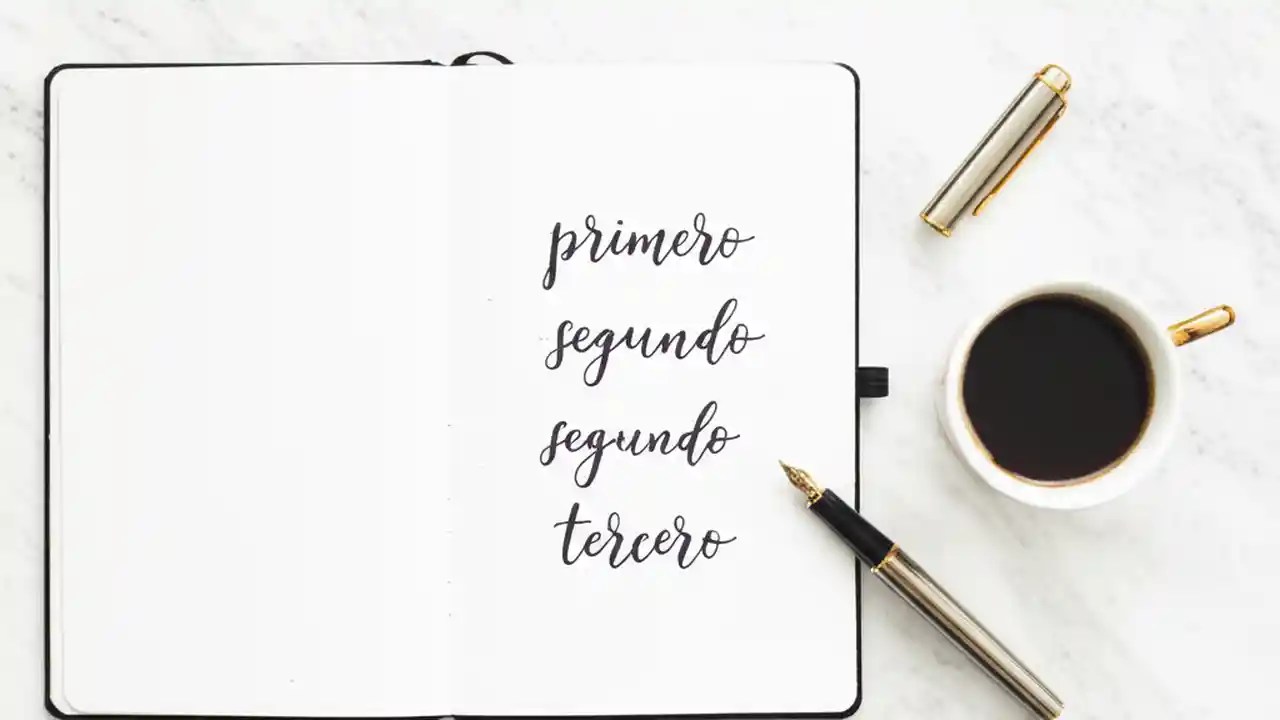 primero
segundo
segundo
tercero